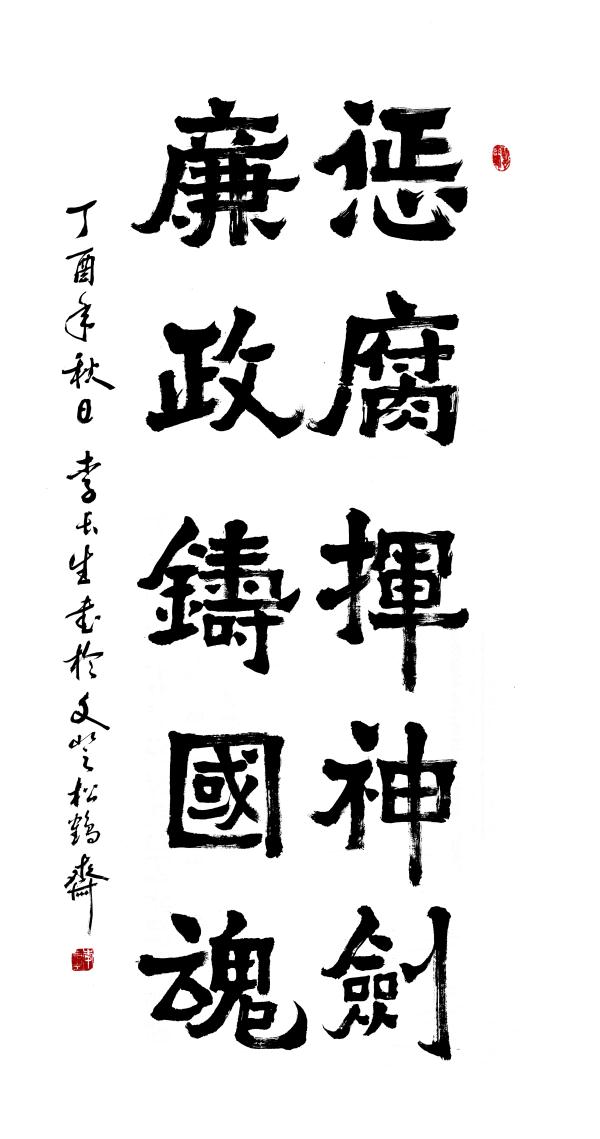 惩腐揮神劍
廉政鑄國魂
丁酉年秋日 李长生书於文登松鶴齋